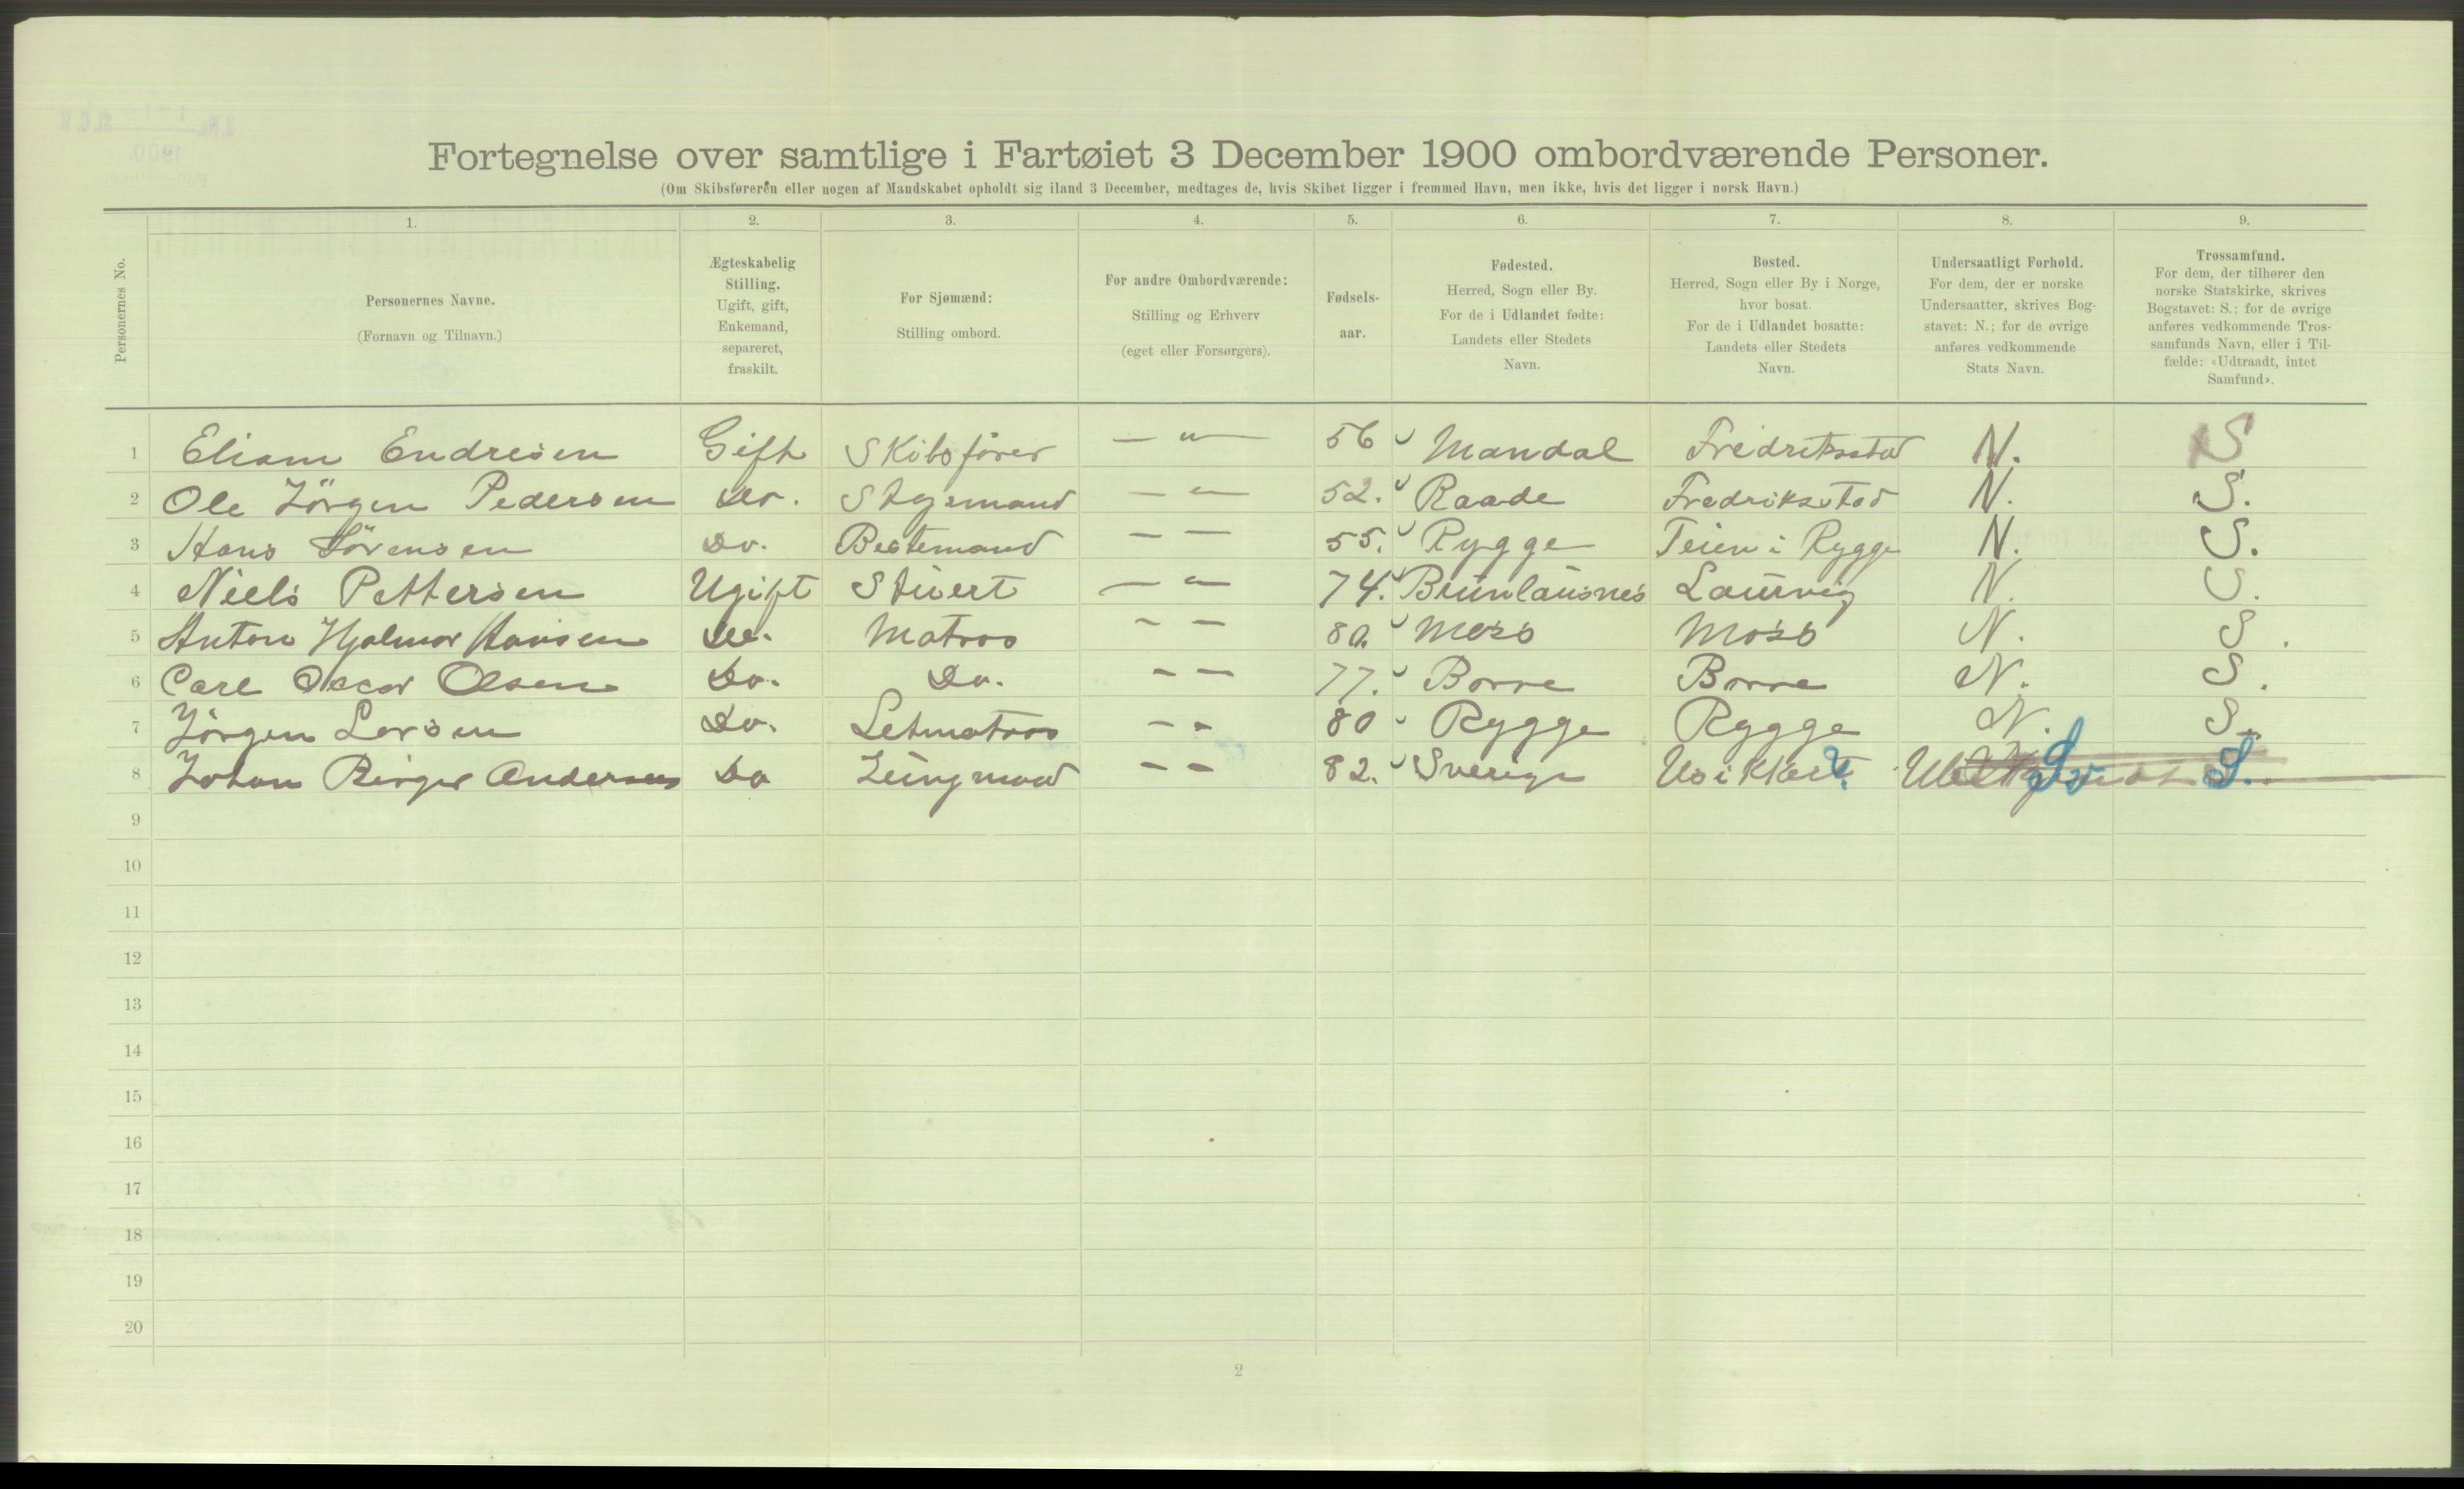 Fortegnelse over samtlige i Fartøiet 3 December 1900 ombordværende Personer.
(Om Skibsføreren eller nogen af Mandskabet opholdt sig iland 3 December, medtages de, hvis Skibet ligger i fremmed Havn, men ikke, hvis det ligger i norsk Havn.)
1. 2. 3. 4. 5. 6. 7. 8. 9.
Personernes No.
Personernes Navne.
(Fornavn og Tilnavn.)
Ægteskabelig
Stilling.
Ugift, gift,
Enkemand,
separeret,
fraskilt.
For Sjømænd:
Stilling ombord.
For andre Ombordværende:
Stilling og Erhverv
(eget eller Forsørgers).
Fødsels-
aar.
Fødested.
Herred, Sogn eller By.
For de i Udlandet fødte:
Landets eller Stedets
Navn.
Bosted.
Herred, Sogn eller By i Norge,
hvor bosat.
For de i Udlandet bosatte:
Landets eller Stedets
Navn.
Undersaatligt Forhold.
For dem, der er norske
Undersaatter, skrives Bog-
stavet: N.; for de øvrige
anføres vedkommende
Stats Navn.
Trossamfund.
For dem, der tilhører den
norske Statskirke, skrives
Bogstavet: S.; for de øvrige
anføres vedkommende Tros-
samfunds Navn, eller i Til-
fælde: «Udtraadt, intet
Samfund».
1 Eliam Endresen Gift Skibsfører — " — 56 Mandal Fredriksstad N. S
2 Ole Jörgen Pedersen Do. Styrmand — " — 52. Raade Fredriksstad N. S.
3 Hans Sörensen Do. Bestemand — — 55. Rygge Teien i Rygge N. S.
4 Niels Pettersen Ugift Stuert — " — 74. Brunlausnes Laurvig N. S.
5 Anton Hjalmar Hansen Do. Matros — — 80. Moss Moss N. S.
6 Carl Oscar Olsen Do. Do. — — 77. Borre Borre N. S.
7 Jörgen Larsen Do. Letmatros — — 80 Rygge Rygge N. S.
8 Johan Birger Andersen Do Jungmand — — 82. Sverige Usikkert ?. Sv S.
9
10
11
12
13
14
15
16
17
18
19
20
2